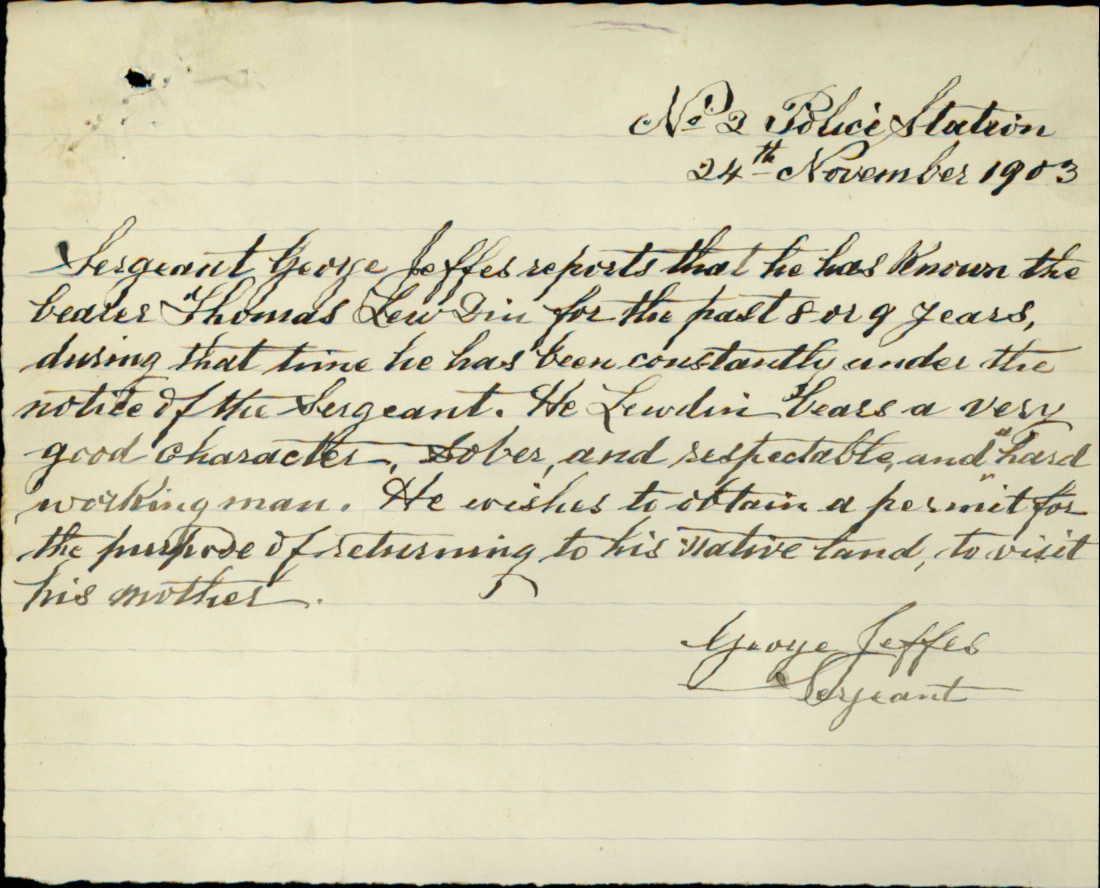 No 2 Police Station
24th November 1903
Sergeant George Jeffes reports that he has Known the
bearer Thomas Lew Din for the past 8 or 9 years,
during that time he has been constantly under the
notice of the Sergeant. He Lewdin bears a very
good character, Sober, and respectable, and hard
working man. He wishes to obtain a permit for
the purpose of returning to his native land, to visit
his mother.
George Jeffes
Sergeant